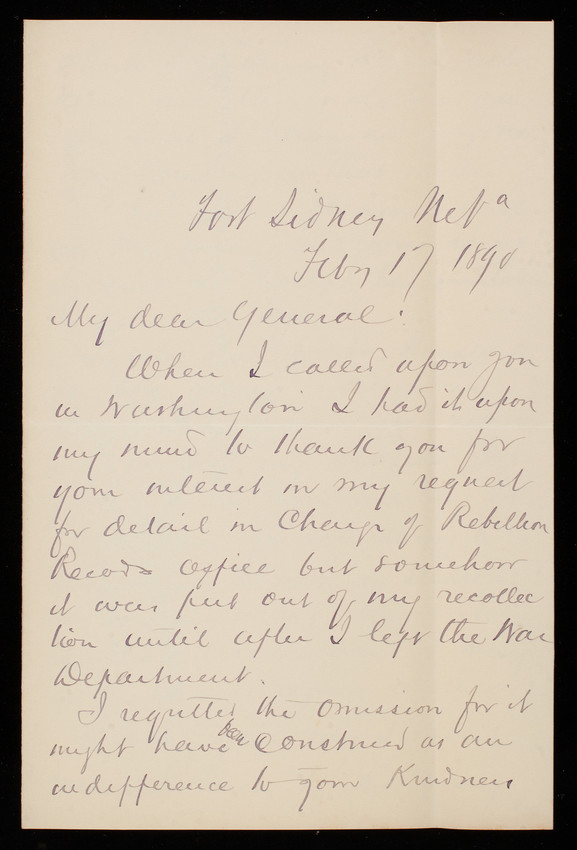 Fort Sidney Neba
Feby 17 1890
My dear General:
When I called upon you
in Washington I had it upon
my mind to thank you for
your interest in my request
for detail in Charge of Rebellion
Records office but somehow
it was put out of my recollec
tion until after I left the War
Department.
I regretted the omission for it
might have been construed as an
indifference to your Kindness